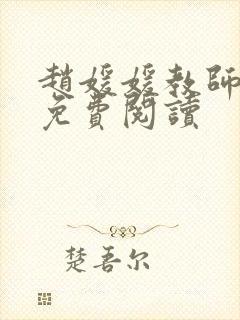 趙媛媛教師
免費閱讀
楚吾尔